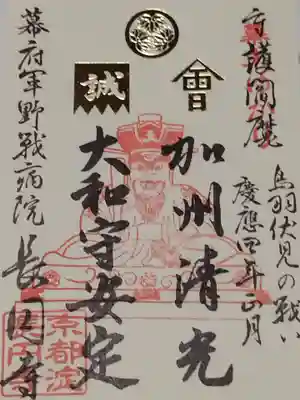 守護閻魔
鳥羽伏見の戦い
慶應四年正月
會
加州清光
誠
大和守安定
幕府軍野戦病院
長円寺
京都淀
長円寺